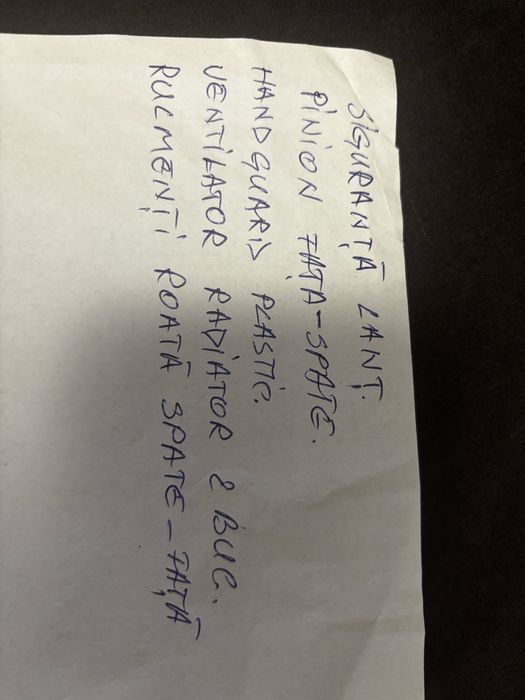 SIGURANȚĂ LANȚ.
PINION FAȚA-SPATE.
HANDGUARD PLASTIC.
VENTILATOR RADIATOR 2 BUC.
RULMENȚI ROATĂ SPATE-FAȚĂ